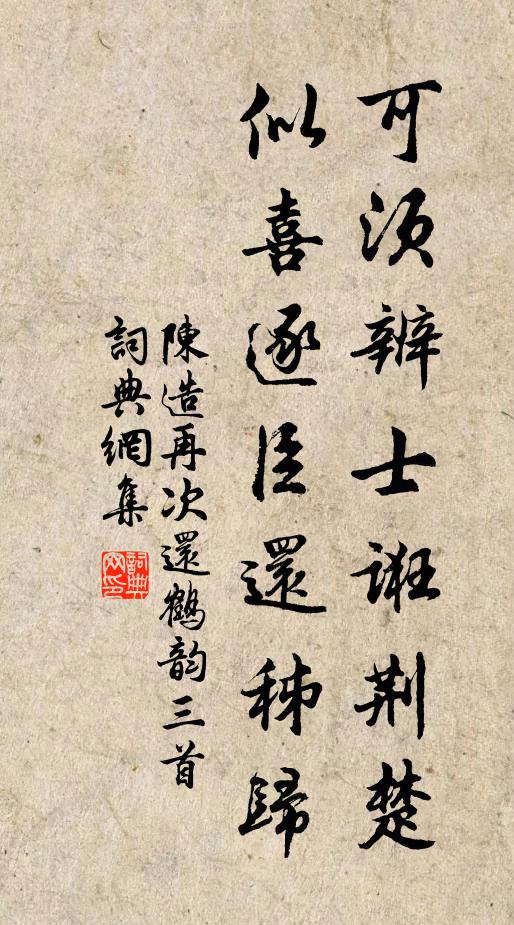 可須辨士誑荆楚
似喜逐臣還秭歸
陳造再次還鶴韵三首
詞典網集
詞典网印